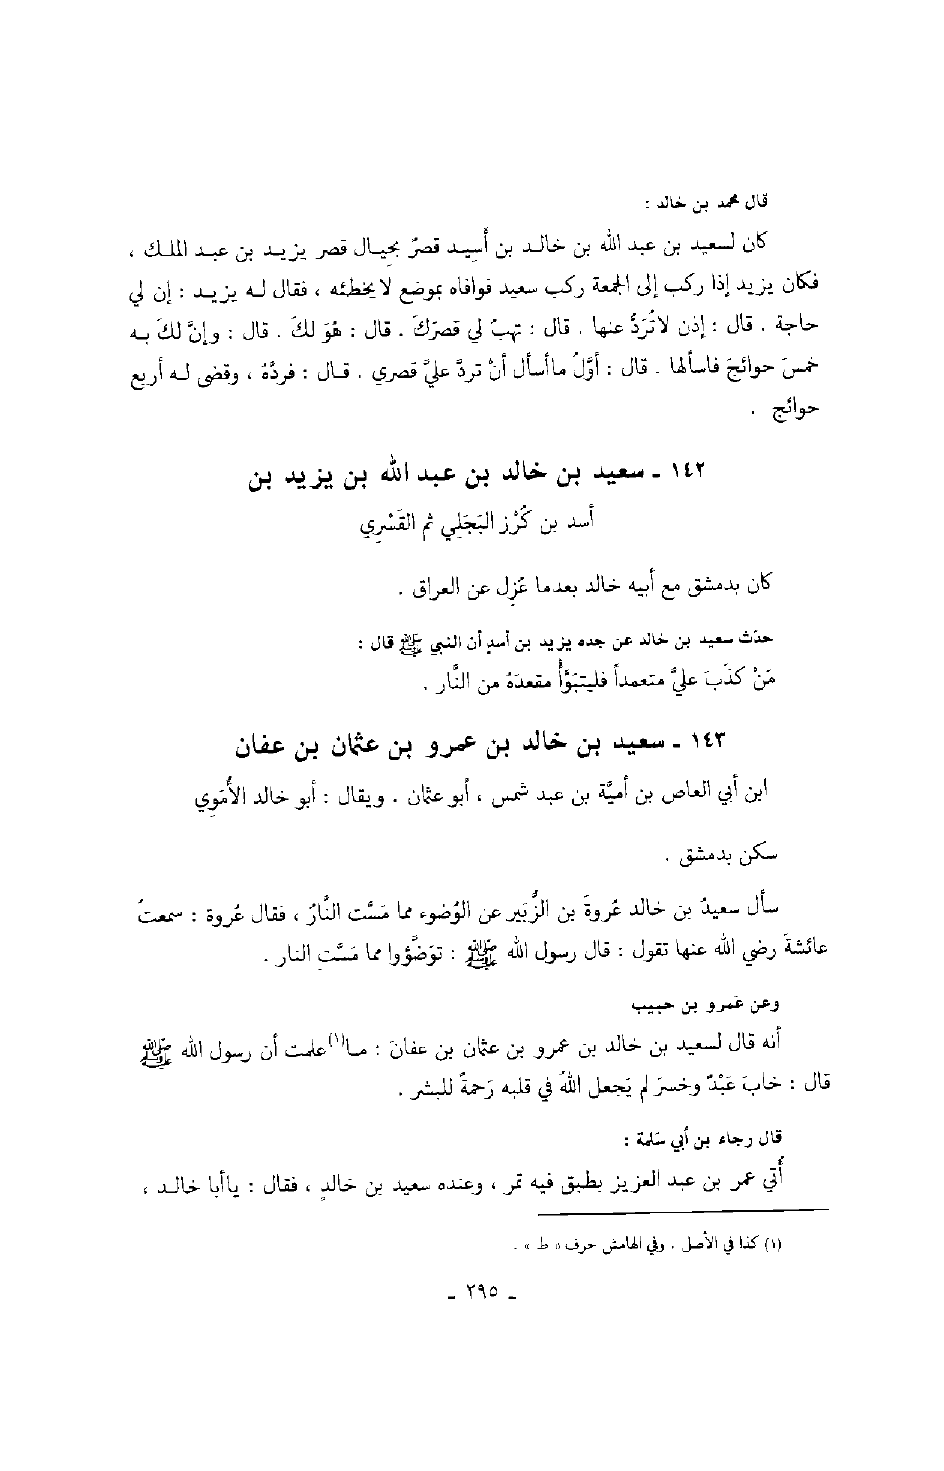 قال محمد بن خالد :
كان لسعيد بن عبد الله بن خالد بن أَسِيد قصرٌ بحِيال قصر يزيد بن عبد الملك ،
فكان يزيد إذا ركب إلى الجمعة ركب سعيد فوافاه بموضع لا يخطئه ، فقال له يزيد : إن لي
حاجة . قال : إذن لا تُرَدَّ عنها . قال : تهبُ لي قصرَك . قال : هوَ لكَ . قال : وإنَّ لكَ به
خمسَ حوائجَ فاسألها . قال : أوَّلُ ما أسأل أنْ تردَّ عليَّ قصري . قال : فردَّهُ ، وقضى له أربع
حوائج .
١٤٢ ـ سعيد بن خالد بن عبد الله بن يزيد بن
أسد بن كُرْز البَجَلي ثم القَسْرِي
كان بدمشق مع أبيه خالد بعدما عُزِل عن العراق .
حدّث سعيد بن خالد عن جده يزيد بن أسدٍ أن النبي ﷺ قال :
مَنْ كذَبَ عليَّ متعمداً فليتبَوَّأْ مقعدَهُ من النَّار .
١٤٣ ـ سعيد بن خالد بن عمرو بن عثمان بن عفان
ابن أبي العاص بن أميَّة بن عبد شمس ، أبو عثمان . ويقال : أبو خالد الأُمَوِي
سكن بدمشق .
سأل سعيدُ بن خالد عُروةَ بن الزُّبَير عن الوُضوء مما مَسَّت النَّارُ ، فقال عُروة : سمعتُ
عائشةَ رضي الله عنها تقول : قال رسول الله ﷺ : توَضَّؤوا مما مَسَّتِ النار .
وعن عَمرو بن حبيب
أنه قال لسعيد بن خالد بن عمرو بن عثمان بن عفان : ما(١) علمت أن رسول الله ﷺ
قال : خابَ عَبْدٌ وخسرَ لم يَجعل اللهُ في قلبه رَحمةً للبشر .
قال رجاء بن أبي سَلمة :
أُتي عمر بن عبد العزيز بطبق فيه تمر ، وعنده سعيد بن خالدٍ ، فقال : يا أبا خالد ،
(١) كذا في الأصل . وفي الهامش حرف « ط » .
ـ ٢٩٥ ـ